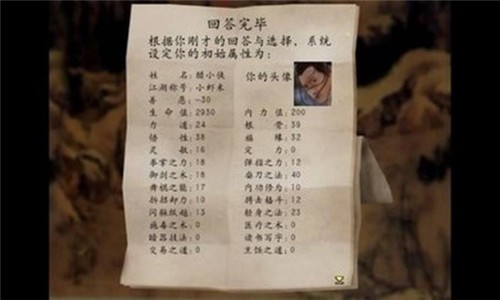 回答完毕
根据你刚才的回答与选择，系统
设定你的初始属性为：
姓名：醋小侠 你的头像
江湖称号：小虾米
善恶：-30
生命值：2930 内力值：200
力道：24 根骨：39
悟性：38 福缘：32
灵敏：16 定力：0
拳掌之力：18 弹指之力：12
御剑之术：18 磨刀之法：40
舞棍之能：17 内功修为：10
拆招卸力：10 搏击格斗：12
闪躲纵越：13 轻身之法：23
施毒之术：0 医疗之术：0
暗器技法：0 读书写字：0
交易之道：0 烹饪之道：0